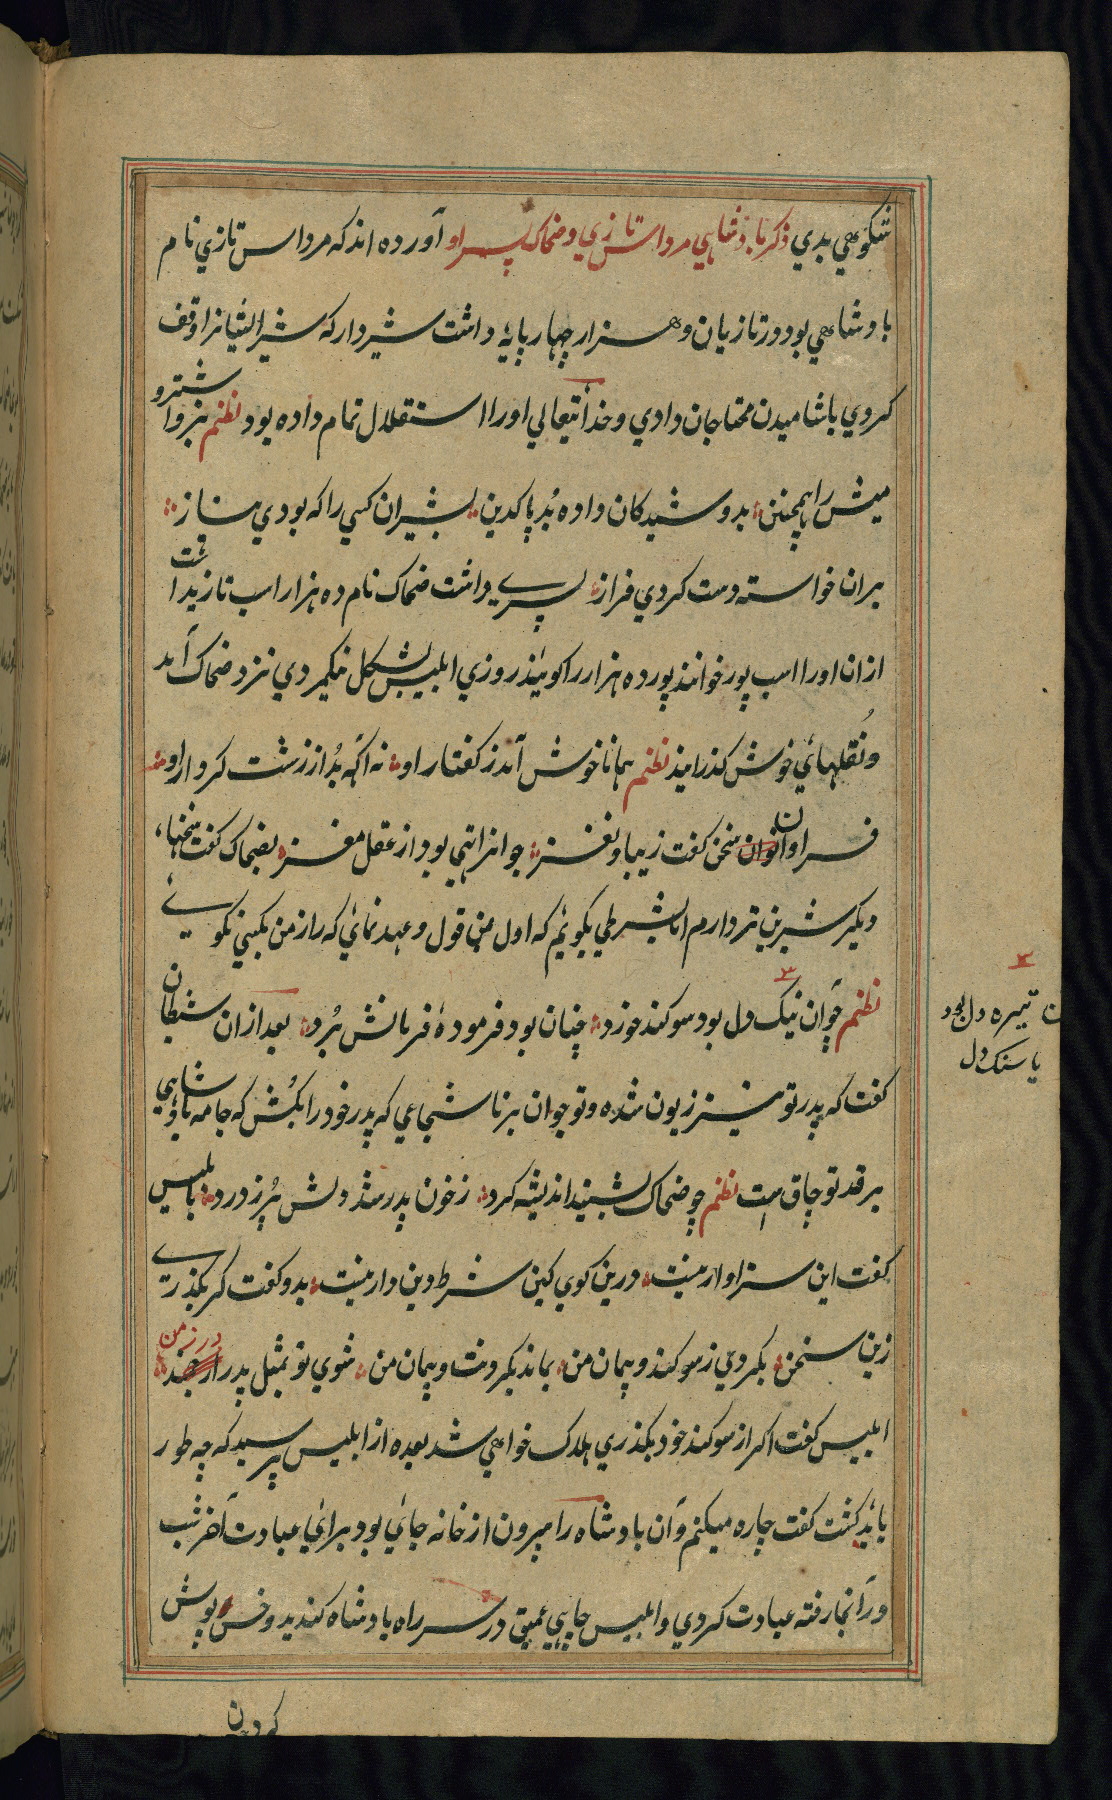 شکوهي بدي ذکر بادشاهي مرداس تازي و ضحاک پسر او آورده اند که مرداس تازي نام
بادشاهي بود در تازيان و هزار چهارپايه داشت شيردار که شير ايشانرا وقف
کردي باشاميدن محتاجان دادي و خداتيعالي او را استقلال تمام داده بود نظم بز و اشتر و
ميش را همچنين بدوشيدکان داده بد پاکدين بشير آن کسي را که بودي نياز
بران خواسته دست کردي فراز پسرے داشت ضحاک نام ده هزار اسب تازي داشت
ازان او را اسپ پور خوانند پور ده هزار را کويند روزي ابليس بشکل نيکمردي نزد ضحاک آمد
و نقلهائي خوش کذرانيد نظم همانا خوش آمدز کفتار او نه آکه بد از زشت کردار او
فراوان سخن کفت زيبا و نغز جوانرا تهي بود از عقل مغز بضحاک کفت سخنهاء
ديکر شيرين تر دارم اما بشرطي بکويم که اول بمن قول و عهد نمائي که راز من بکسي نکوئے
نظم جوان نيک دل بود سوکند خورد چنان بود فرمودهٔ فرمانش برد بعد ازان شيطان
کفت که پدر تو پير زبون شده و تو جوان برنا شجاعي که پدر خود را بکش که جامه بادشاهي
بر قد تو چاق است نظم چو ضحاک بشنيد انديشه کرد ز خون پدر شد دلش پر ز درد بابليس
کفت اين سزاوار نيست درين کوي کين شرط دين دار نيست بدو کفت کر بکذرے
زين سخن بکردي ز سوکند و پيمان من بماند بکردنت و پيمان من شوي تو بمثل پدر ارجمند در زمن
ابليس کفت اکر از سوکند خود بکذري هلاک خواهي شد بعده از ابليس پرسيد که چه طور
بايد کشت کفت چاره ميکنم و آن بادشاه را بيرون از خانه جائي بود براي عبادت آخر شب
در آنجا رفته عبادت کردي و ابليس چاهي عميق در سر راه بادشاه کنديد و خس پوش
کردن
تيره دل بود
يا سنک دل